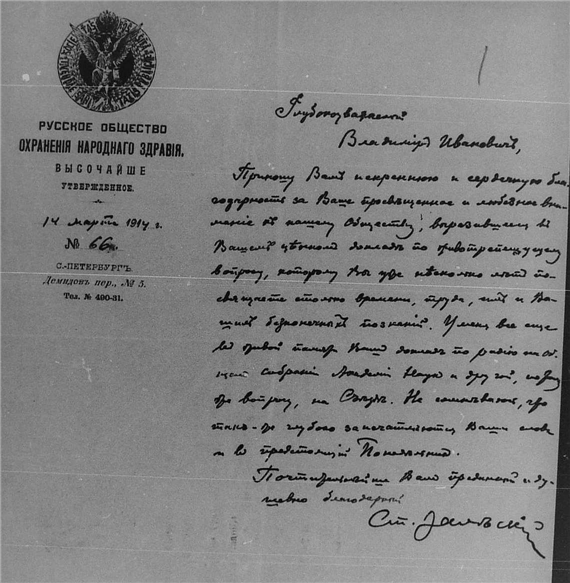 РУССКОЕ ОБЩЕСТВО
ОХРАНЕНІЯ НАРОДНАГО ЗДРАВІЯ,
ВЫСОЧАЙШЕ
УТВЕРЖДЕННОЕ.
14 марта 1914 г.
№ 66
С.-ПЕТЕРБУРГЪ.
Демидовъ пер., № 5.
Тел. № 490-31.
Глубокоуважаемый
Владиміръ Ивановичъ,
Приношу Вамъ искреннюю и сердечную бла-
годарность за Ваше просвѣщенное и любезное вни-
маніе къ нашему Обществу, выразившееся въ
Вашемъ цѣнномъ докладѣ по животрепещущему
вопросу, которому Вы уже нѣсколько лѣтъ по-
свящаете столько времени, труда, силъ и Ва-
шихъ безконечныхъ познаній. У меня все еще
въ живой памяти Вашъ докладъ по радію на об-
щемъ собраніи Академіи Наукъ и другой, по
же вопросу, на Съѣздѣ. Не сомнѣваюсь, что
такъ-же глубоко запечатлѣются Ваши слова
и въ предстоящій Понедѣльникъ.
Почтительнѣйше Вамъ преданный и ду-
шевно благодарный
Ст.